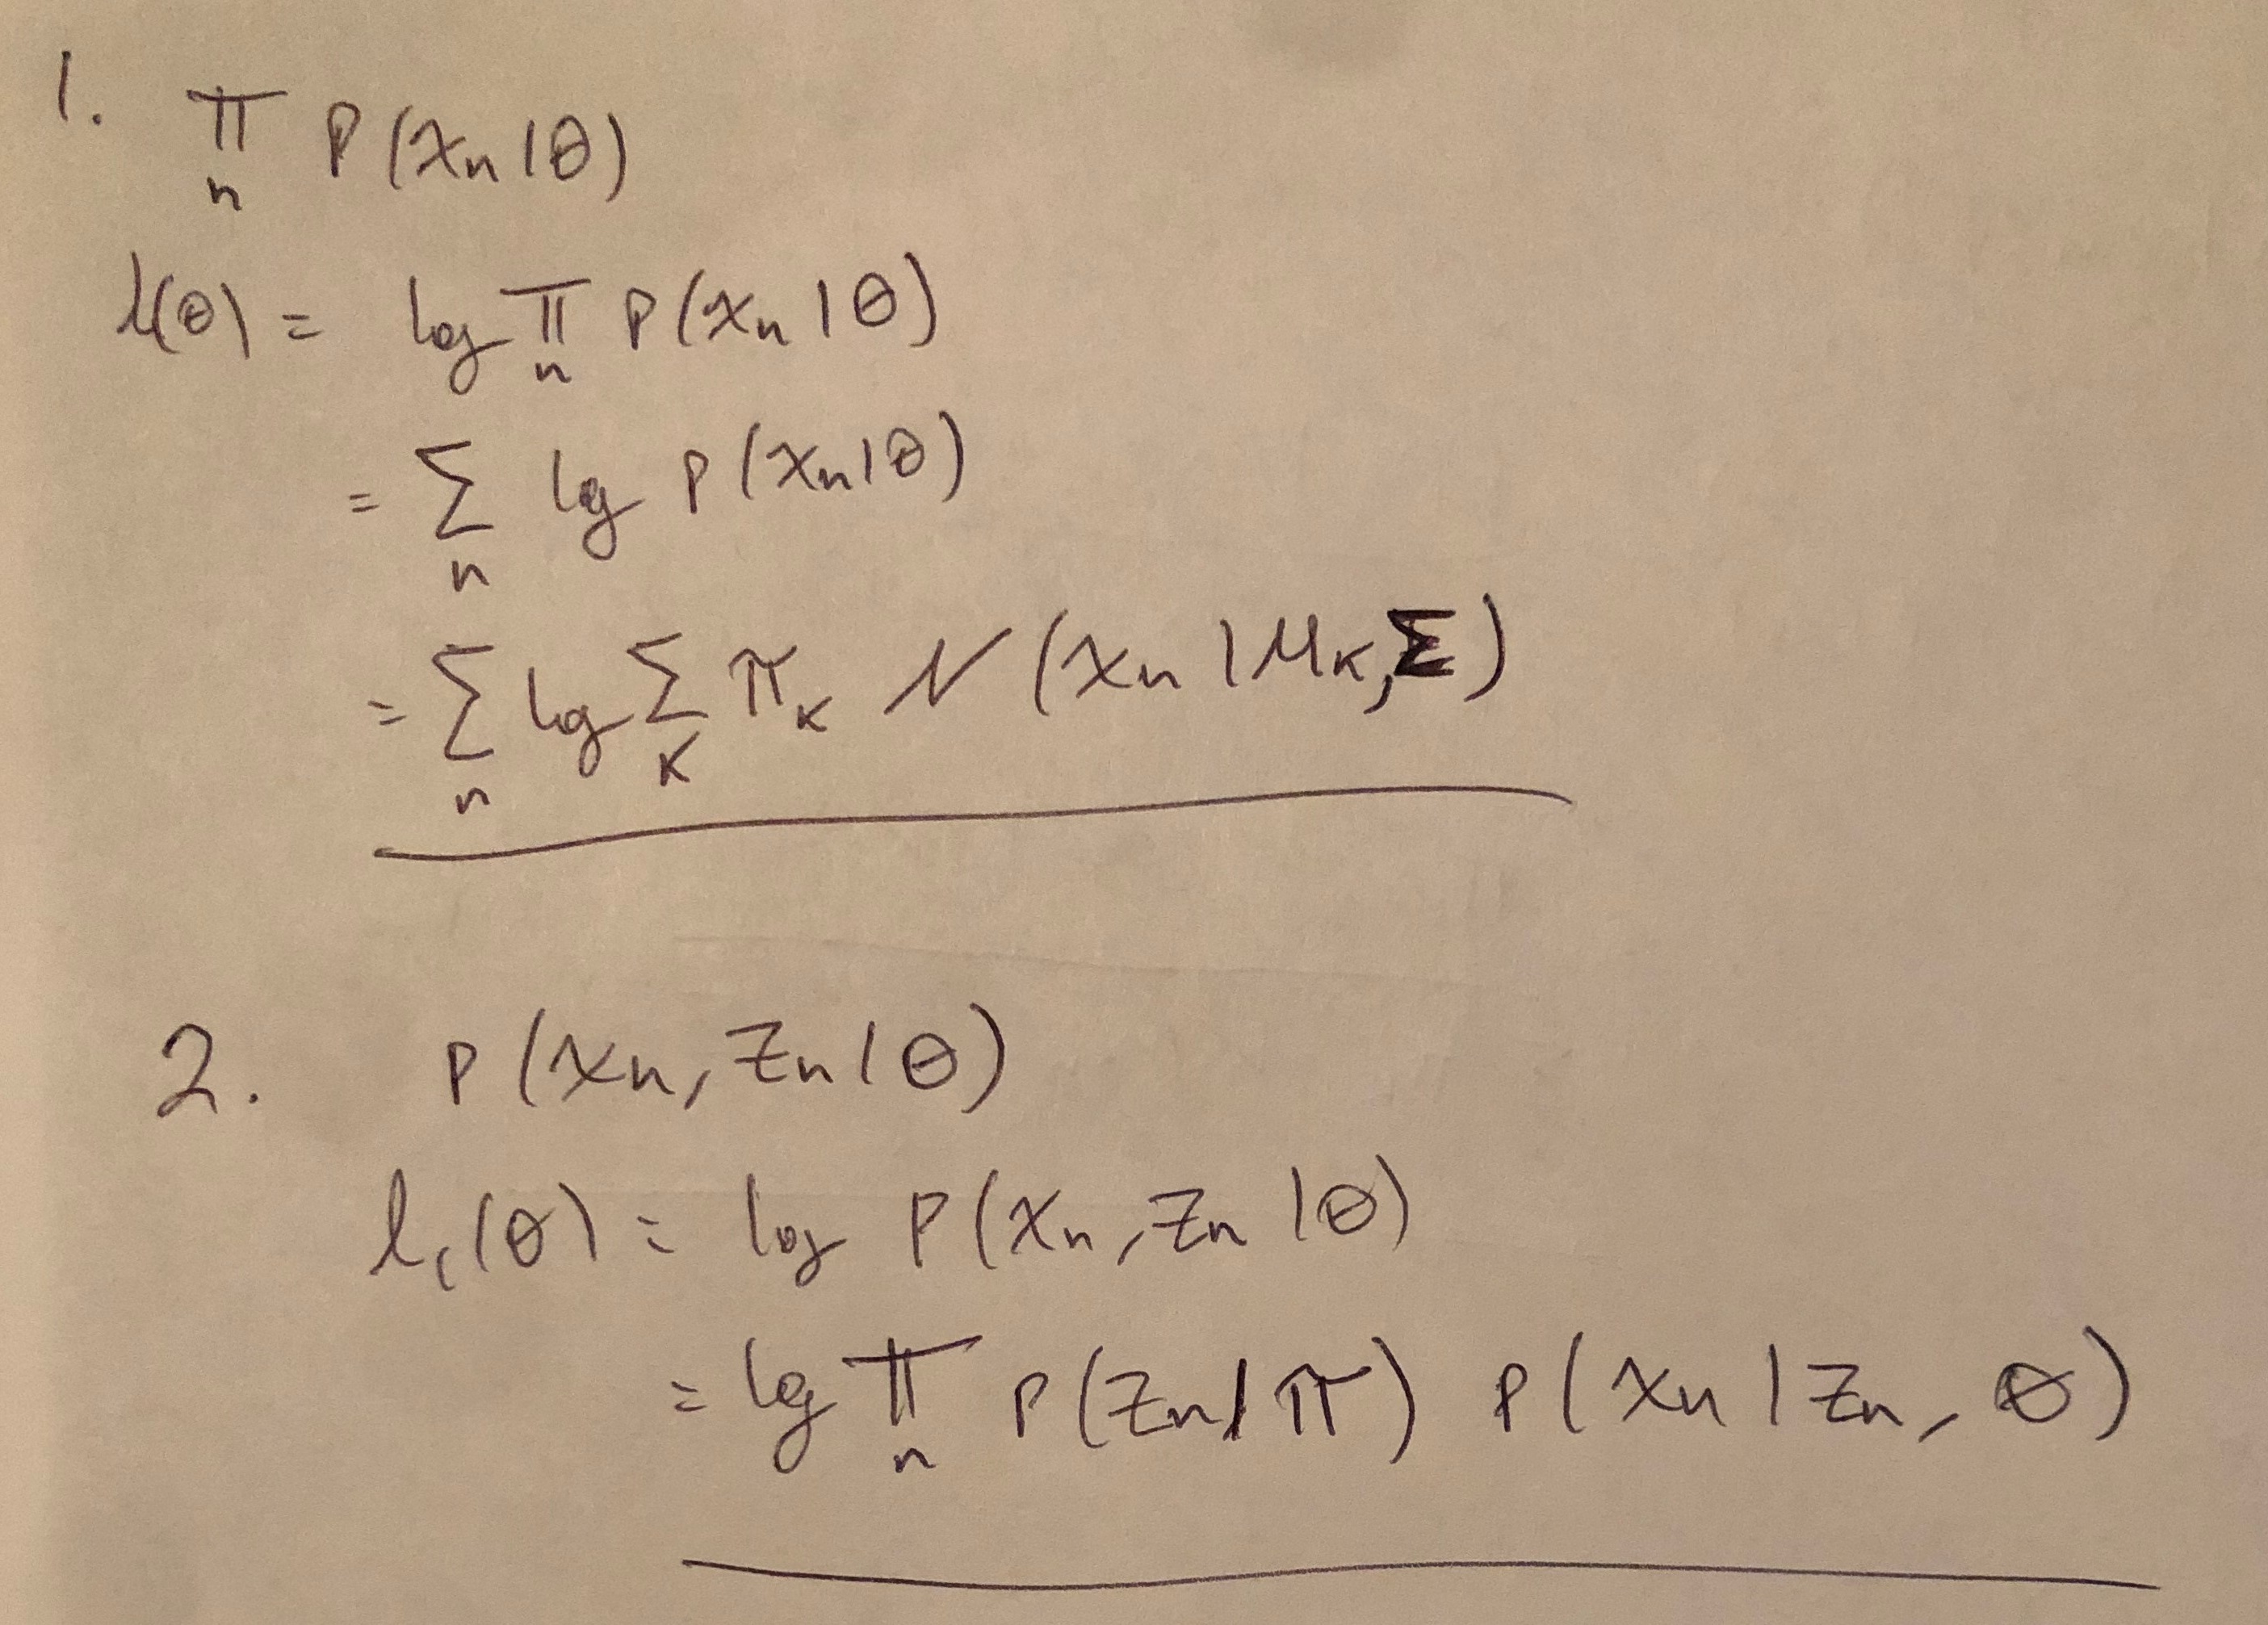 1. ∏_n P(x_n|θ)
l(θ) = log ∏_n P(x_n|θ)
= Σ_n log P(x_n|θ)
= Σ_n log Σ_K π_K N(x_n|μ_K, Σ)
2. P(x_n, z_n|θ)
l_c(θ) = log P(x_n, z_n|θ)
= log ∏_n P(z_n|π) P(x_n|z_n, θ)